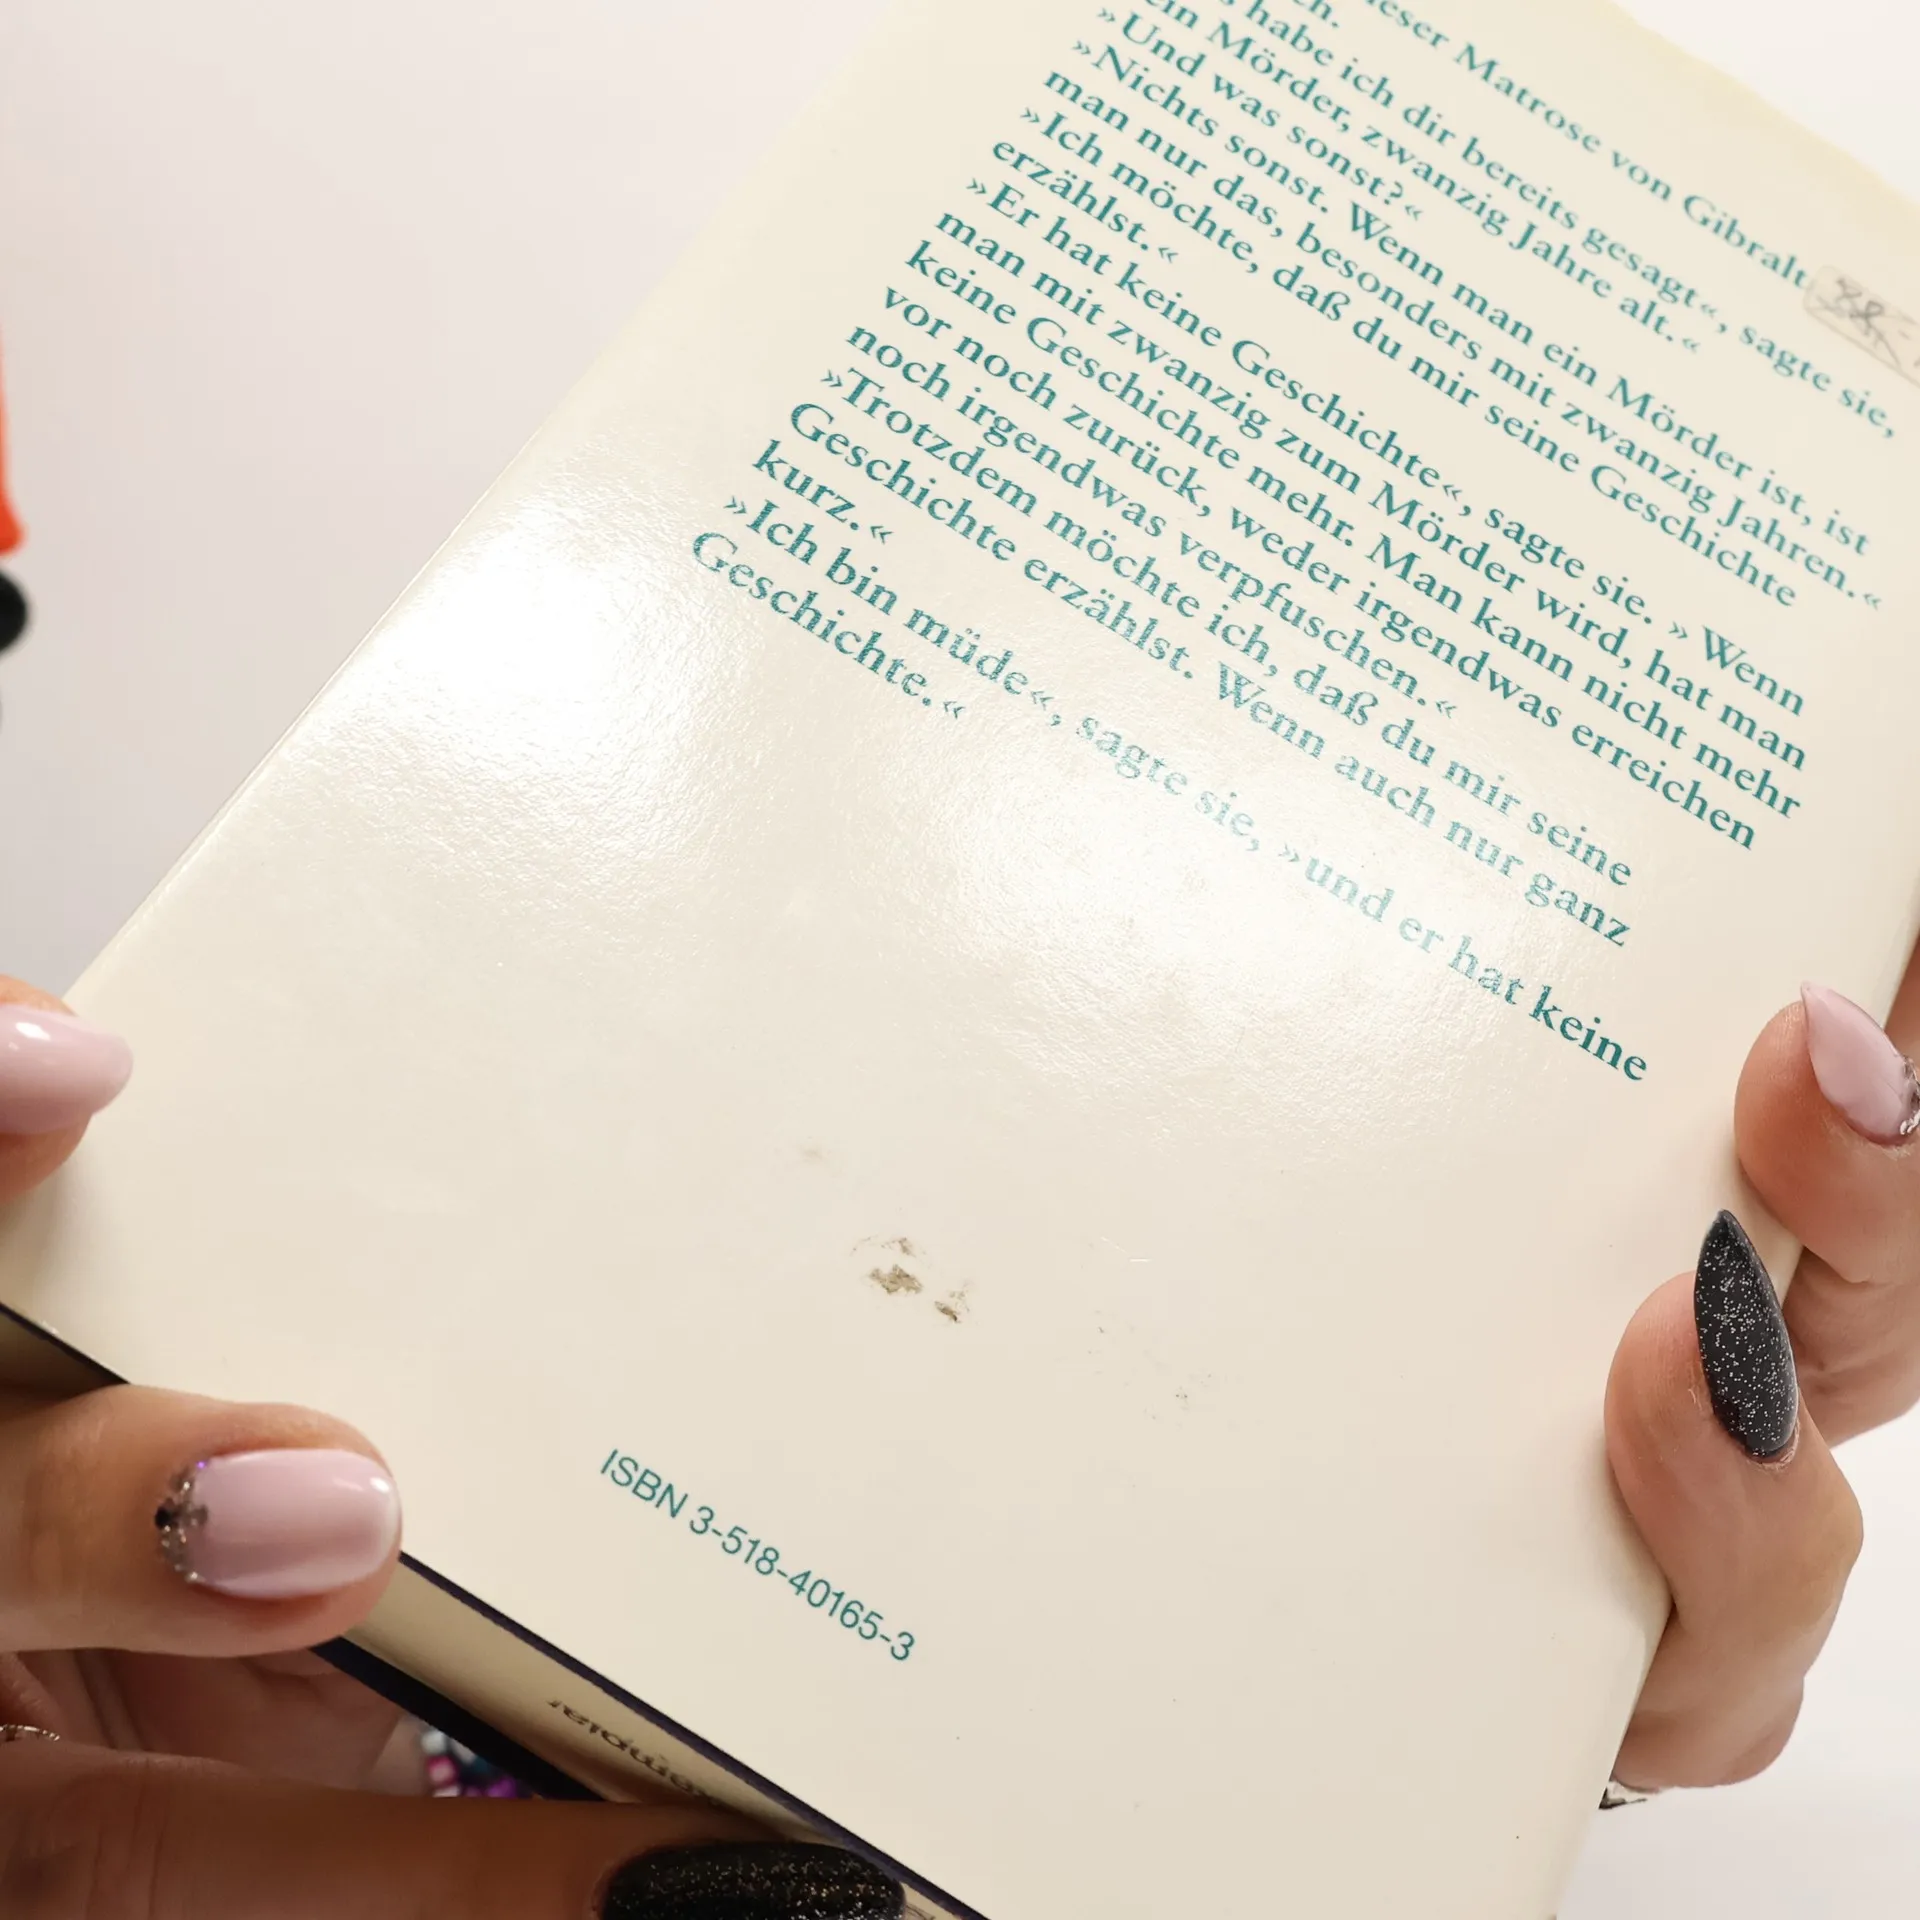 Matrose von Gibralt
habe ich dir bereits gesagt«, sagte sie,
ein Mörder, zwanzig Jahre alt.«
»Und was sonst?«
»Nichts sonst. Wenn man ein Mörder ist, ist
man nur das, besonders mit zwanzig Jahren.«
»Ich möchte, daß du mir seine Geschichte
erzählst.«
»Er hat keine Geschichte«, sagte sie. » Wenn
man mit zwanzig zum Mörder wird, hat man
keine Geschichte mehr. Man kann nicht mehr
vor noch zurück, weder irgendwas erreichen
noch irgendwas verpfuschen.«
»Trotzdem möchte ich, daß du mir seine
Geschichte erzählst. Wenn auch nur ganz
kurz.«
»Ich bin müde«, sagte sie, »und er hat keine
Geschichte.«
ISBN 3-518-40165-3